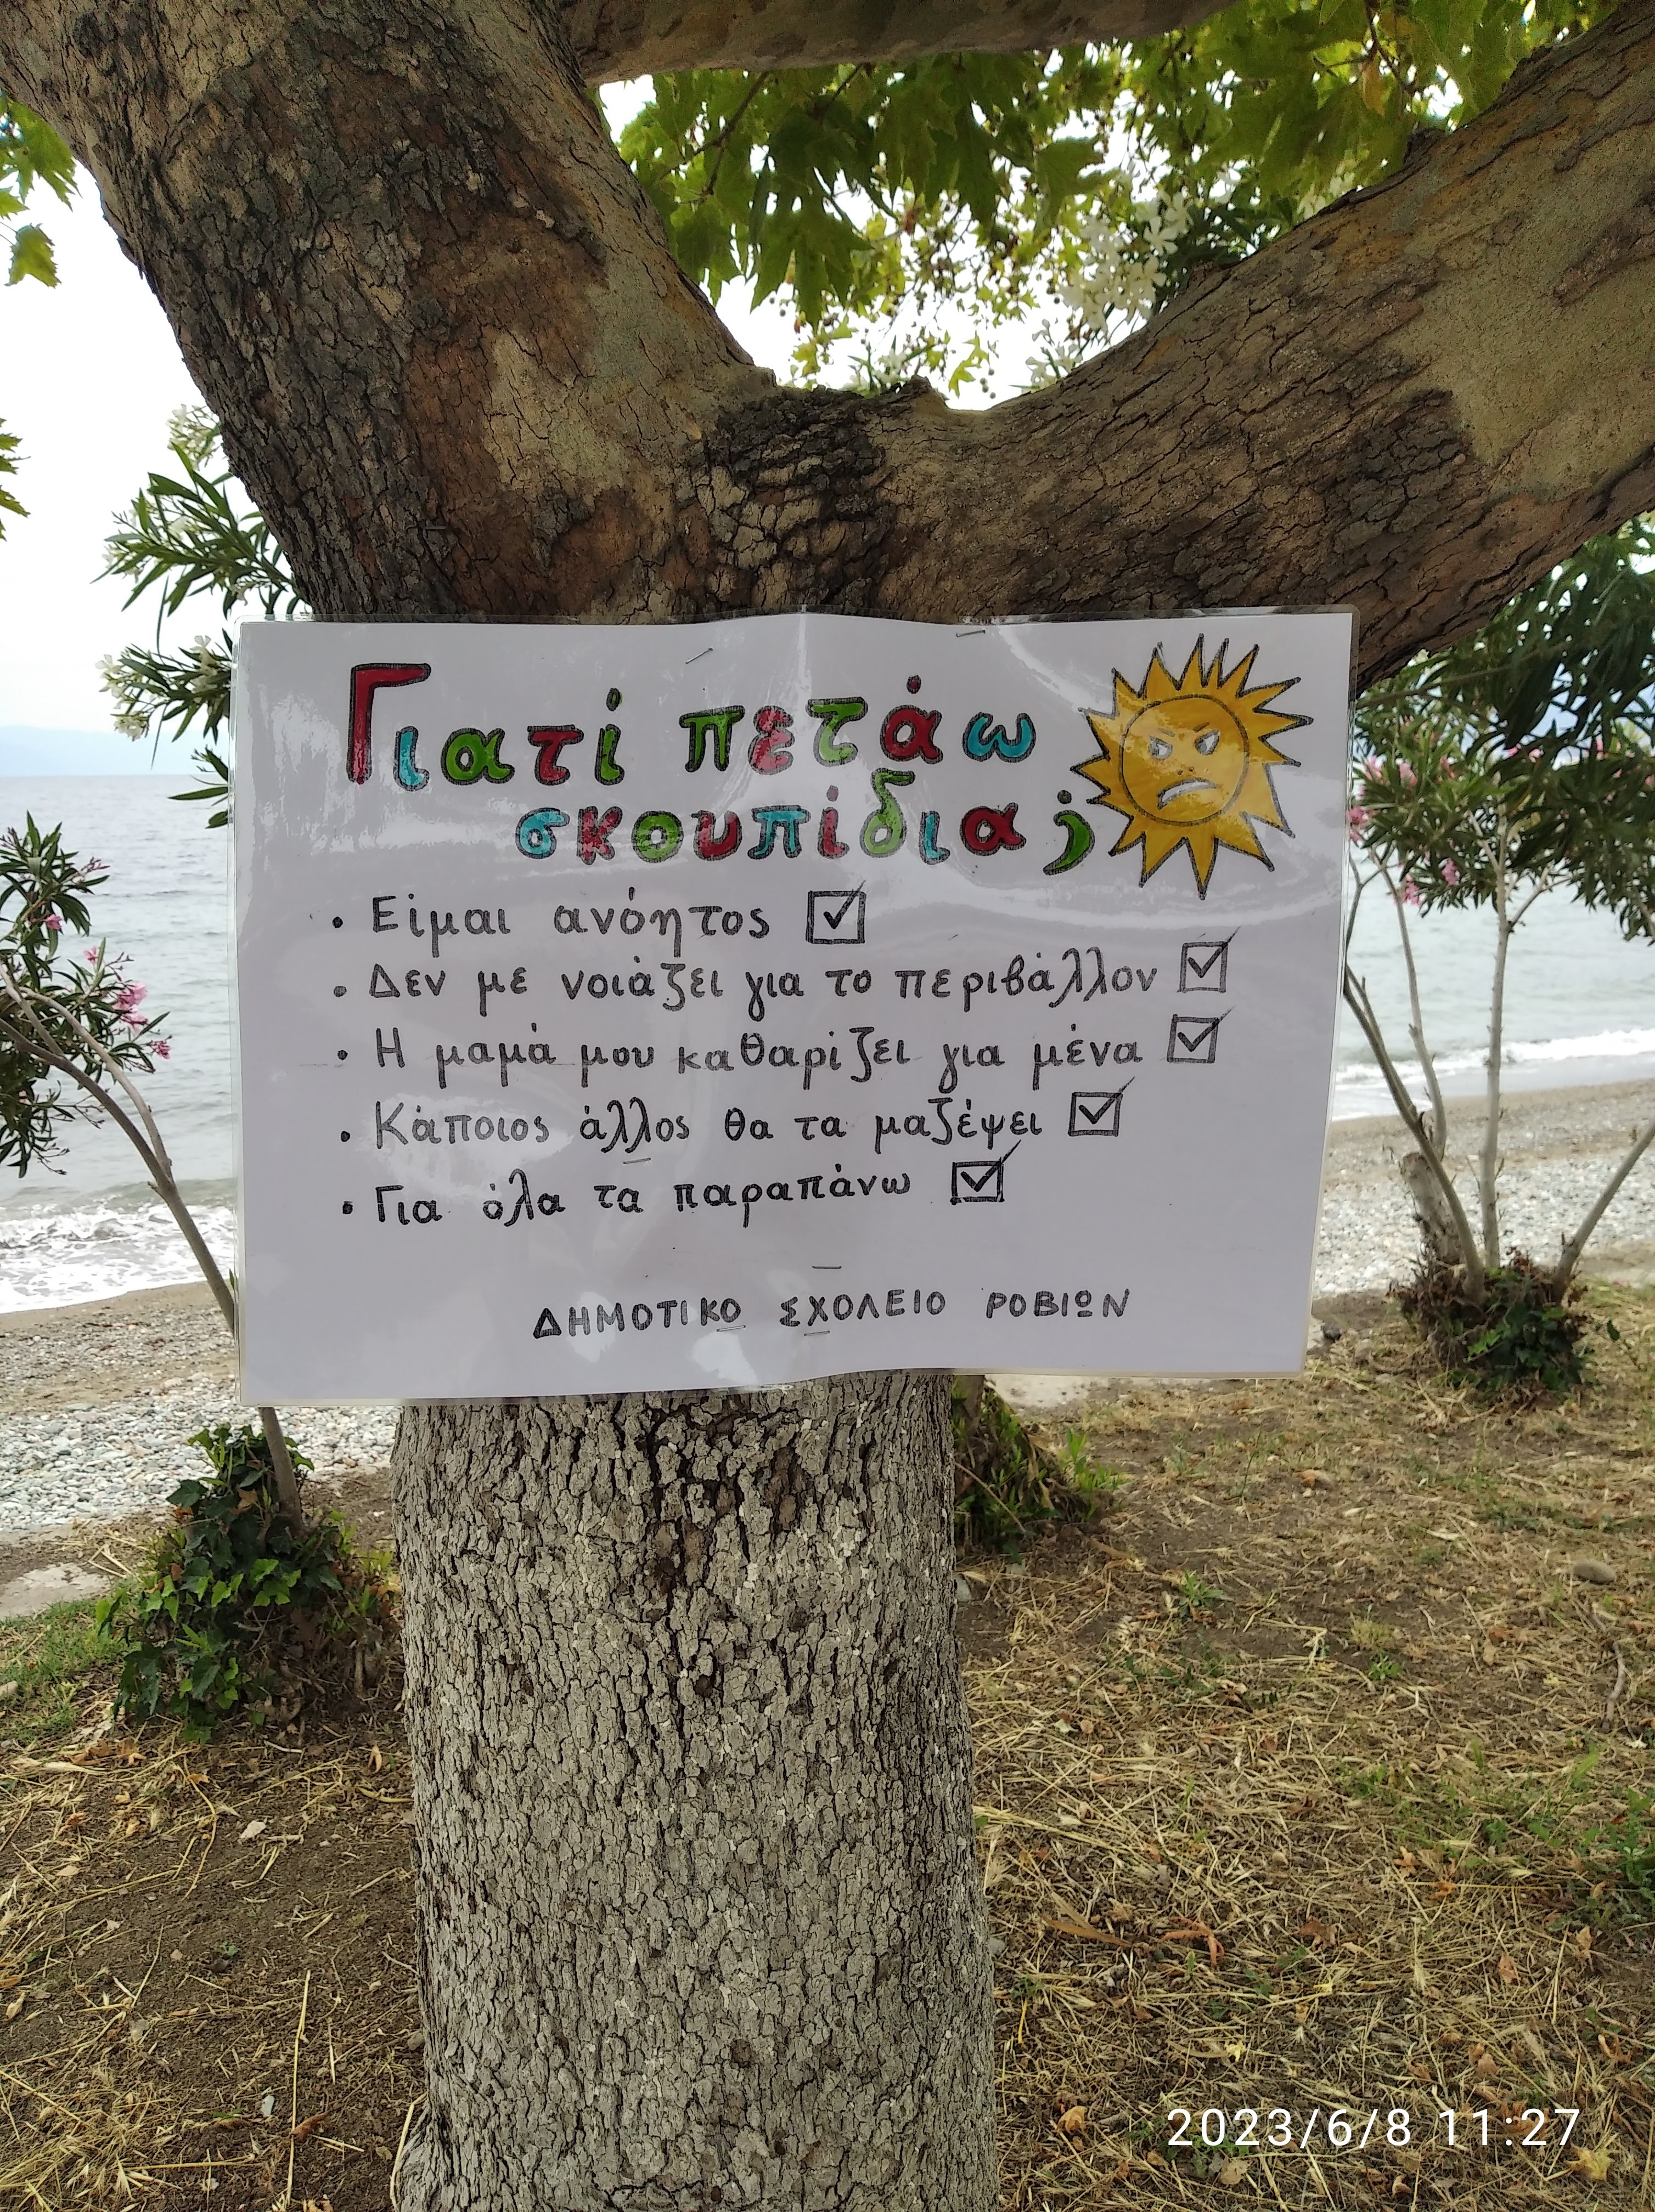 Γιατί πετάω
σκουπίδια;
• Είμαι ανόητος ☑
• Δεν με νοιάζει για το περιβάλλον ☑
• Η μαμά μου καθαρίζει για μένα ☑
• Κάποιος άλλος θα τα μαζέψει ☑
• Για όλα τα παραπάνω ☑
ΔΗΜΟΤΙΚΟ ΣΧΟΛΕΙΟ ΡΟΒΙΩΝ
2023/6/8 11:27